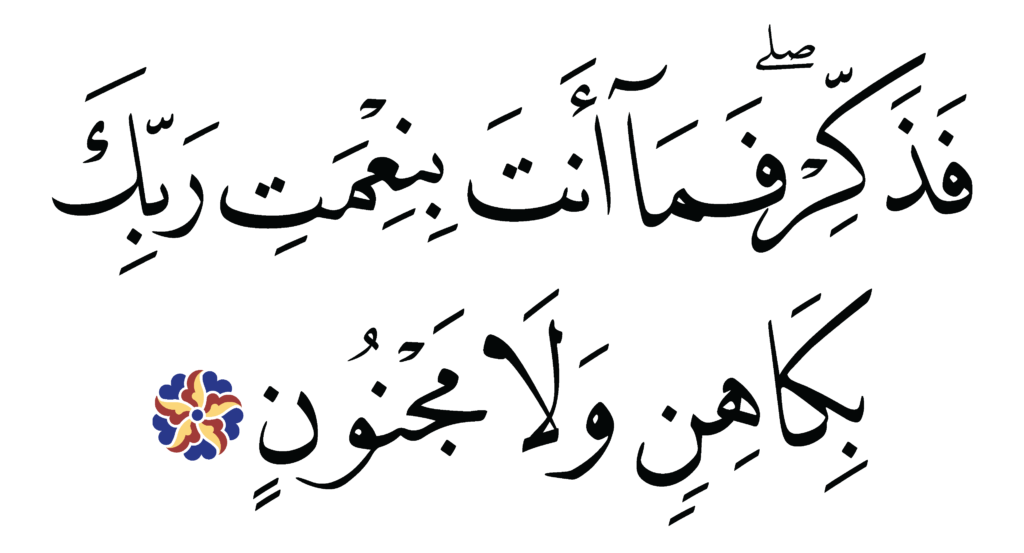 فَذَكِّرْ ۖ فَمَآ أَنتَ بِنِعْمَتِ رَبِّكَ
بِكَاهِنٍ وَلَا مَجْنُونٍ